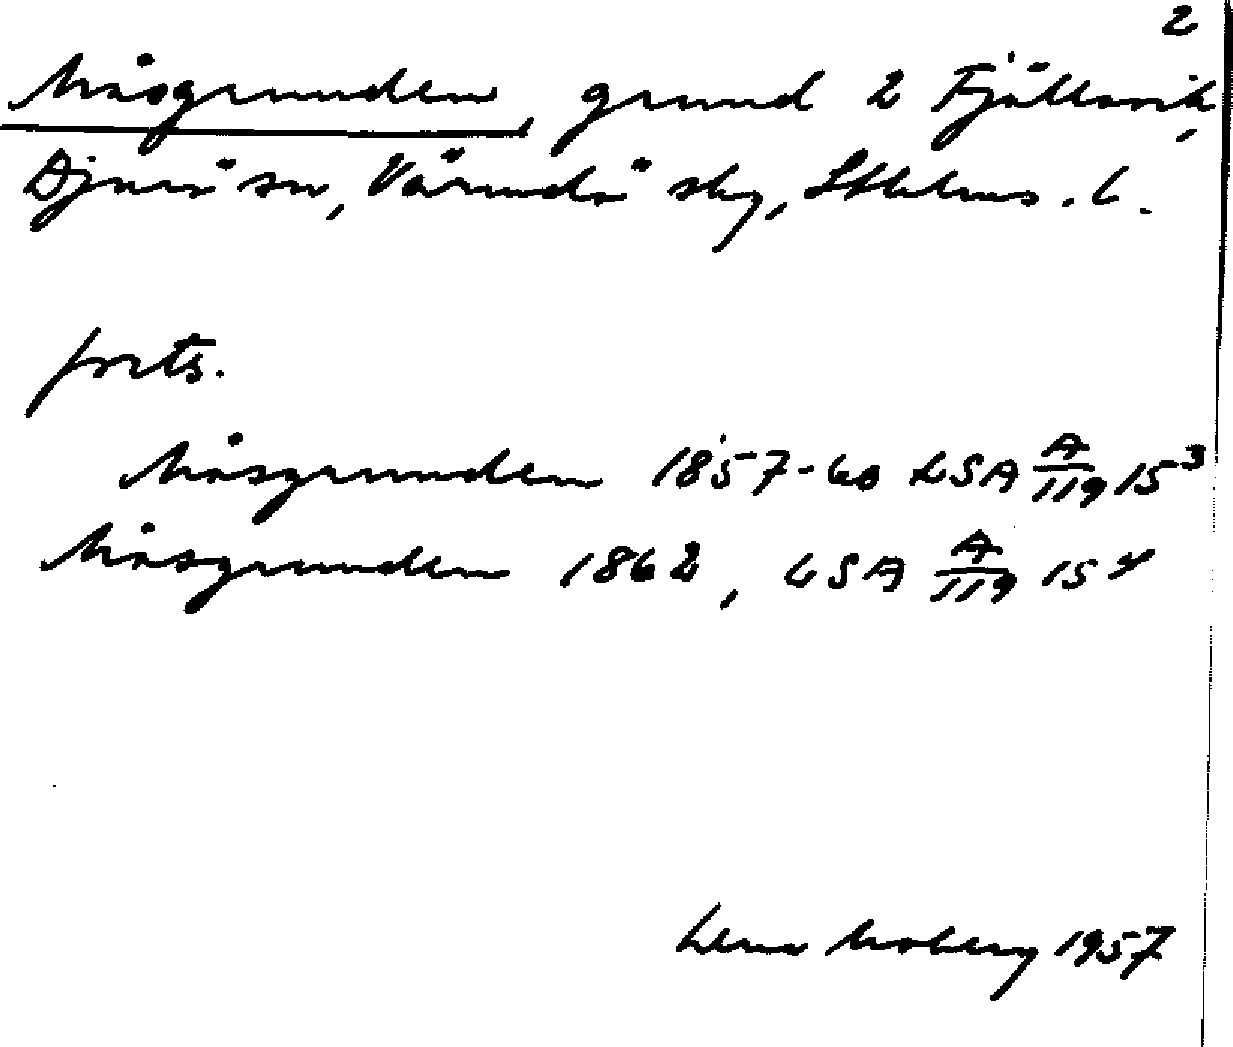 2
Måsgrunden, grund 2 Fjällsvik,
Djurö sn, Värmdö skg, Sthlms. l.
forts.
Måsgrunden 1857-60 LSA A/119 15³
Måsgrunden 1862, LSA A/119 15⁴
Lena Moberg 1957